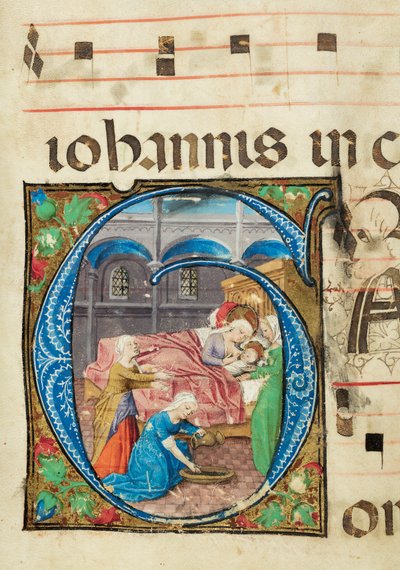 iohannis in c
GA
on